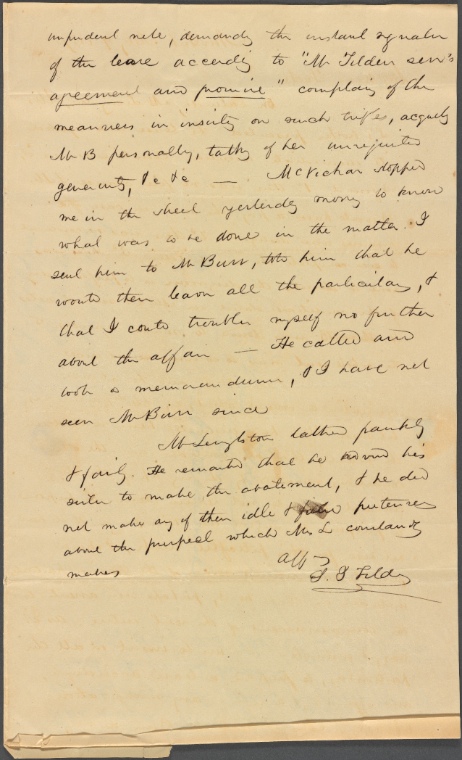 impudent note, demands the instant signature
of the lease according to "Mr Tilden sen's
agreement and promise" complains of the
meanness in insisting on such trifles, acquits
Mr B personally, talks of her unrequited
generosity, &c &c — McVickar stopped
me in the street yesterday morning to know
what was to be done in the matter. I
sent him to Mr Burr, told him that he
would there learn all the particulars, &
that I could trouble myself no further
about the affair — He called and
took a memorandum, & I have not
seen Mr Burr since
Mr Livingston talked frankly
& fairly. He remarked that he advised his
sister to make the abatement, & he did
not make any of them idle & false pretenses
about the which Mrs L constantly
makes
affy
S. J Tilden